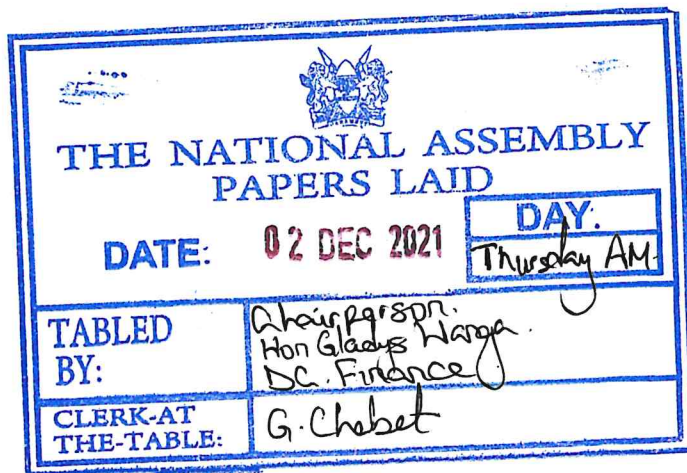 THE NATIONAL ASSEMBLY
PAPERS LAID
DATE: 02 DEC 2021
DAY:
Thursday AM.
TABLED BY:
Chairperson.
Hon Gladys Wanga.
DC. Finance
CLERK-AT THE-TABLE:
G. Chebet